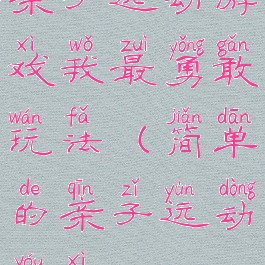 亲子运动游
xì wǒ zuì yǒng gǎn
戏我最勇敢
wán fǎ jiǎn dān
玩法（简单
de qīn zǐ yùn dòng
的亲子运动
yóu xì